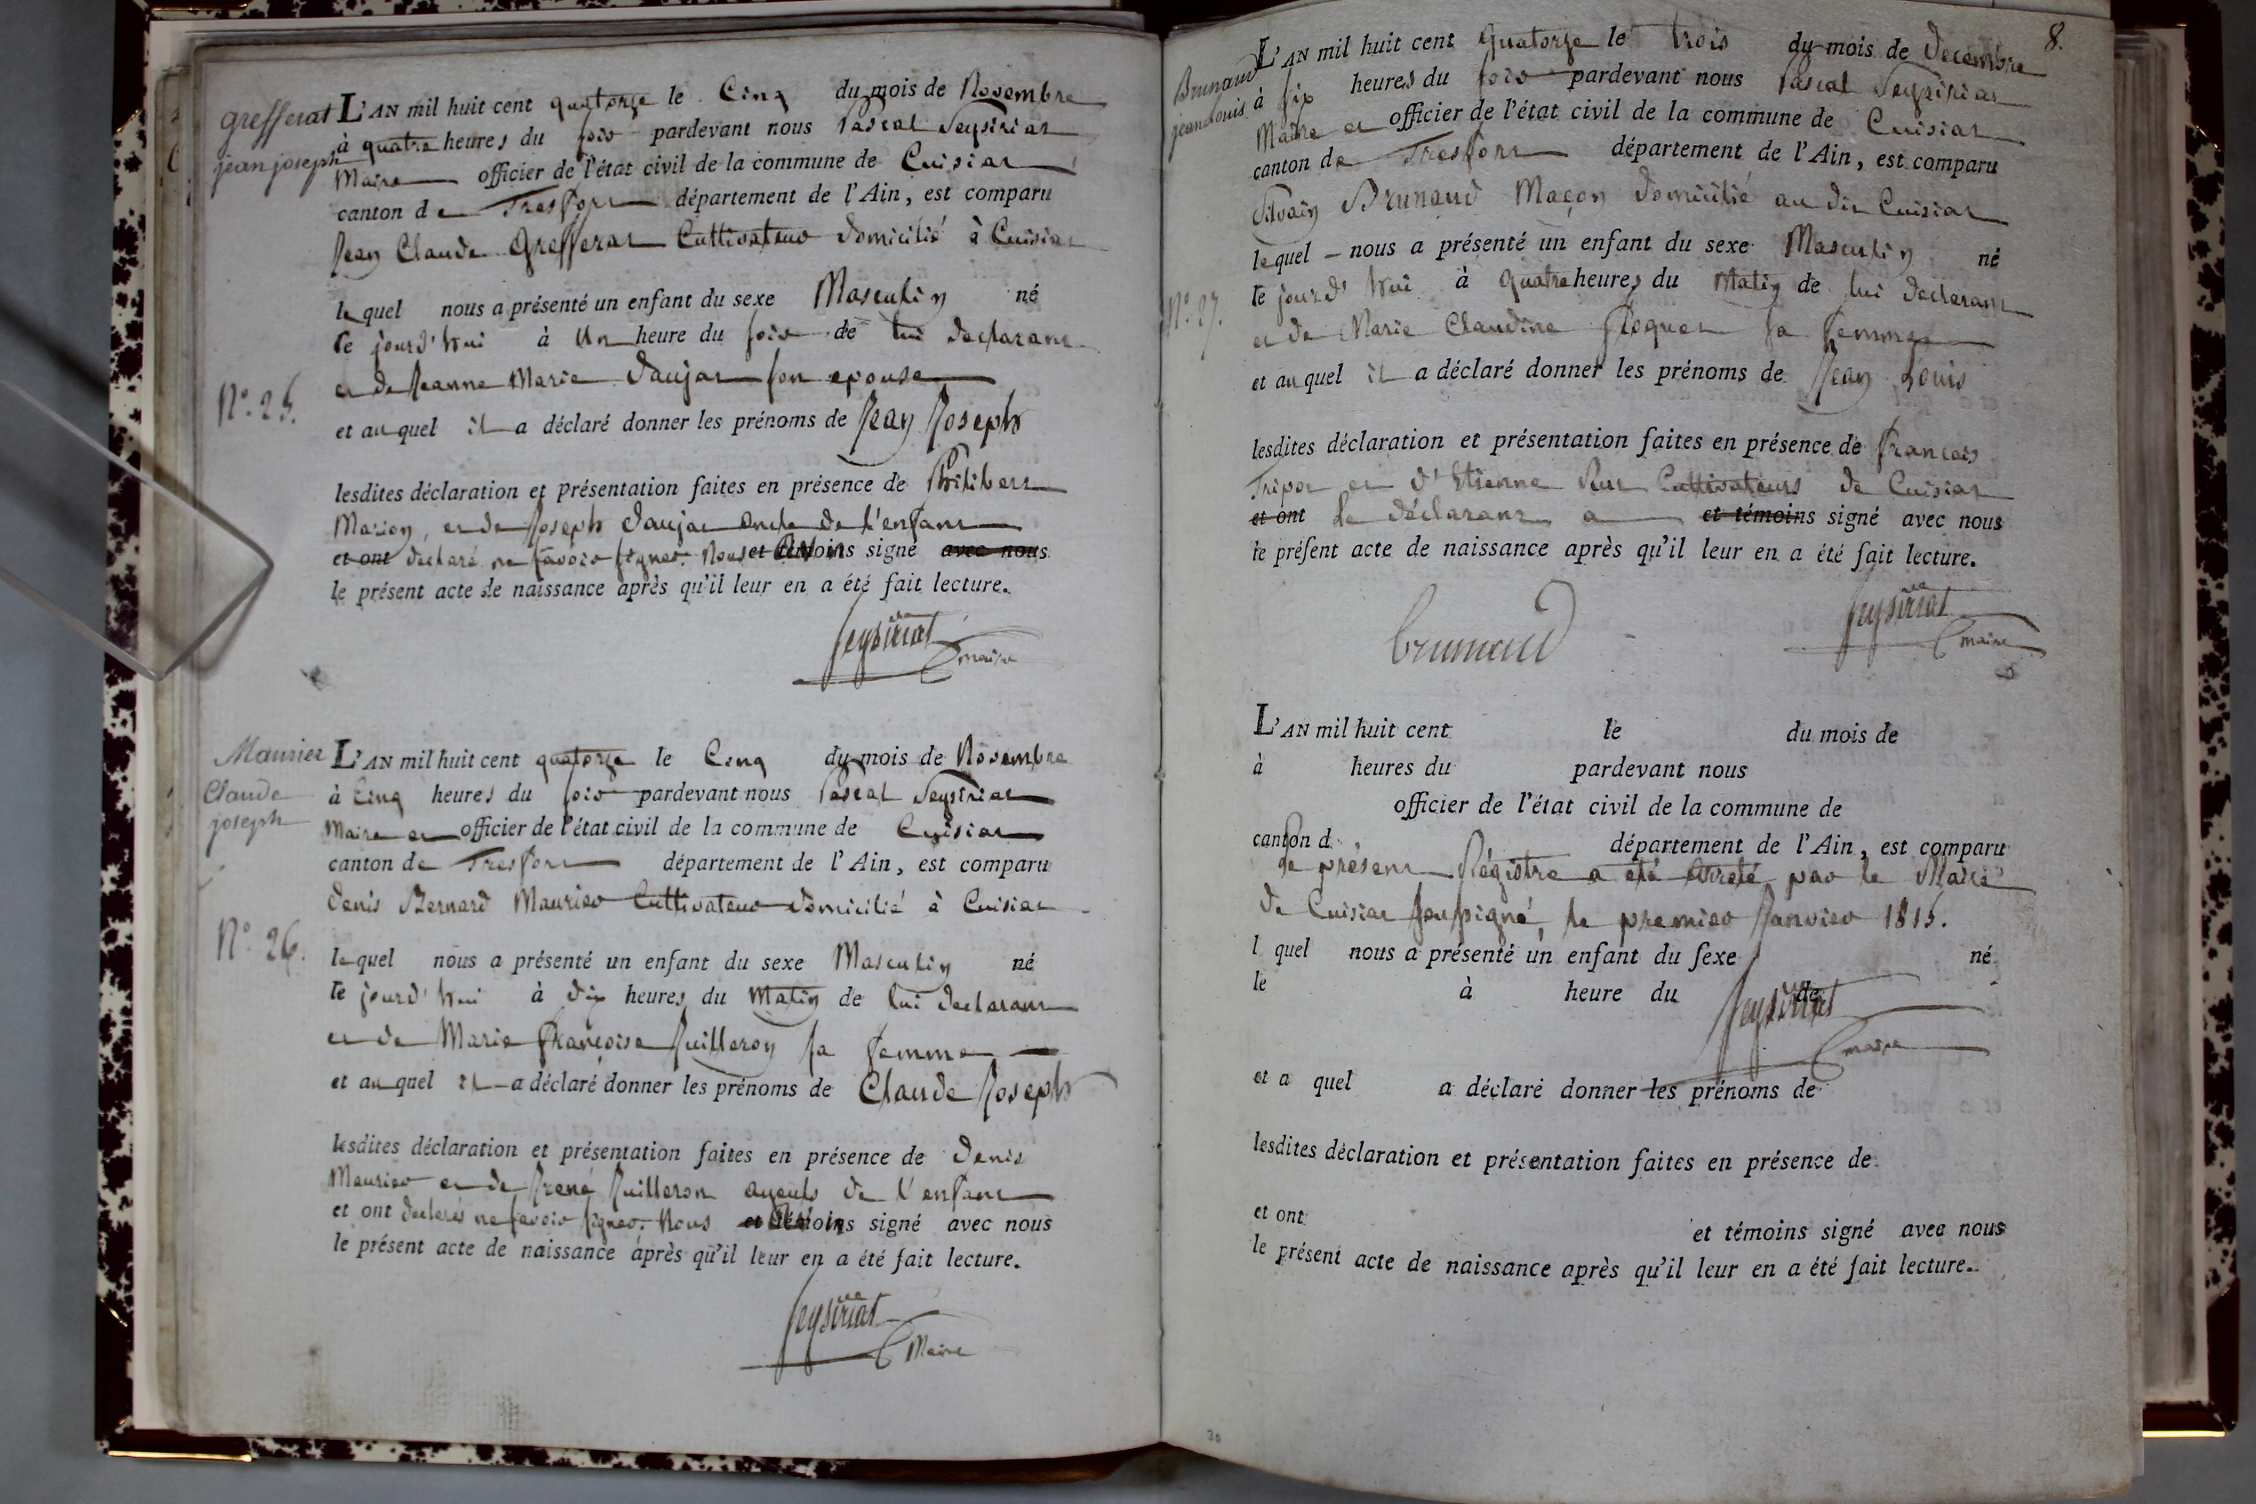 grefferat
jean joseph
L'AN mil huit cent quatorze le Cinq du mois de Novembre
à quatre heures du soir pardevant nous Pascal Seysiriat
Maire officier de l'état civil de la commune de Cuisiat
canton de Tresfort département de l'Ain, est comparu
Jean Claude Grefferat Cultivateur domicilié à Cuisiat
lequel nous a présenté un enfant du sexe Masculin né
le jourd'hui à Un heure du soir de lui declarant
et de Jeanne Marie daujat son epouse
N.° 25.
et auquel il a déclaré donner les prénoms de Jean Joseph
lesdites déclaration et présentation faites en présence de Philibert
Marion, et de Joseph daujat oncle de l'enfant
et ont declaré ne savoir signer. Nous et témoins signé avec nous
le présent acte de naissance après qu'il leur en a été fait lecture.
Seysiriat
maire
Maurier
Claude
joseph
L'AN mil huit cent quatorze le Cinq du mois de Novembre
à Cinq heures du soir pardevant nous Pascal Seysiriat
Maire et officier de l'état civil de la commune de Cuisiat
canton de Tresfort département de l'Ain, est comparu
denis Bernard Maurier Cultivateur domicilié à Cuisiat
N.° 26.
lequel nous a présenté un enfant du sexe Masculin né
le jourd'hui à dix heures du Matin de lui declarant
et de Marie françoise Juilleron sa femme
et auquel il a déclaré donner les prénoms de Claude Joseph
lesdites déclaration et présentation faites en présence de denis
Maurier et de René Juilleron ayeuls de l'enfant
et ont declarés ne savoir signer. Nous et témoins signé avec nous
le présent acte de naissance après qu'il leur en a été fait lecture.
Seysiriat
Maire
8.
Brunaud
jean Louis
L'AN mil huit cent quatorze le trois du mois de Decembre
à six heures du soir pardevant nous Pascal Seysiriat
Maire et officier de l'état civil de la commune de Cuisiat
canton de Tresfort département de l'Ain, est comparu
Silvain Brunaud Maçon domicilié au dit Cuisiat
lequel nous a présenté un enfant du sexe Masculin né
N.° 27.
le jourd'hui à quatre heures du Matin de lui declarant
et de Marie Claudine floquet sa femme
et auquel il a déclaré donner les prénoms de Jean Louis
lesdites déclaration et présentation faites en présence de francois
Tripoz et d'Etienne Cultivateurs de Cuisiat
et ont le déclarant a et témoins signé avec nous
le présent acte de naissance après qu'il leur en a été fait lecture.
brunaud
Seysiriat
maire
L'AN mil huit cent le du mois de
à heures du pardevant nous
officier de l'état civil de la commune de
canton d département de l'Ain, est comparu
le présent Régistre a été arreté par le Maire
de Cuisiat soussigné, le premier Janvier 1815.
l quel nous a présenté un enfant du sexe né
le à heure du de
Seysiriat
maire
et a quel a déclaré donner les prénoms de
lesdites déclaration et présentation faites en présence de
et ont et témoins signé avec nous
le présent acte de naissance après qu'il leur en a été fait lecture.
30